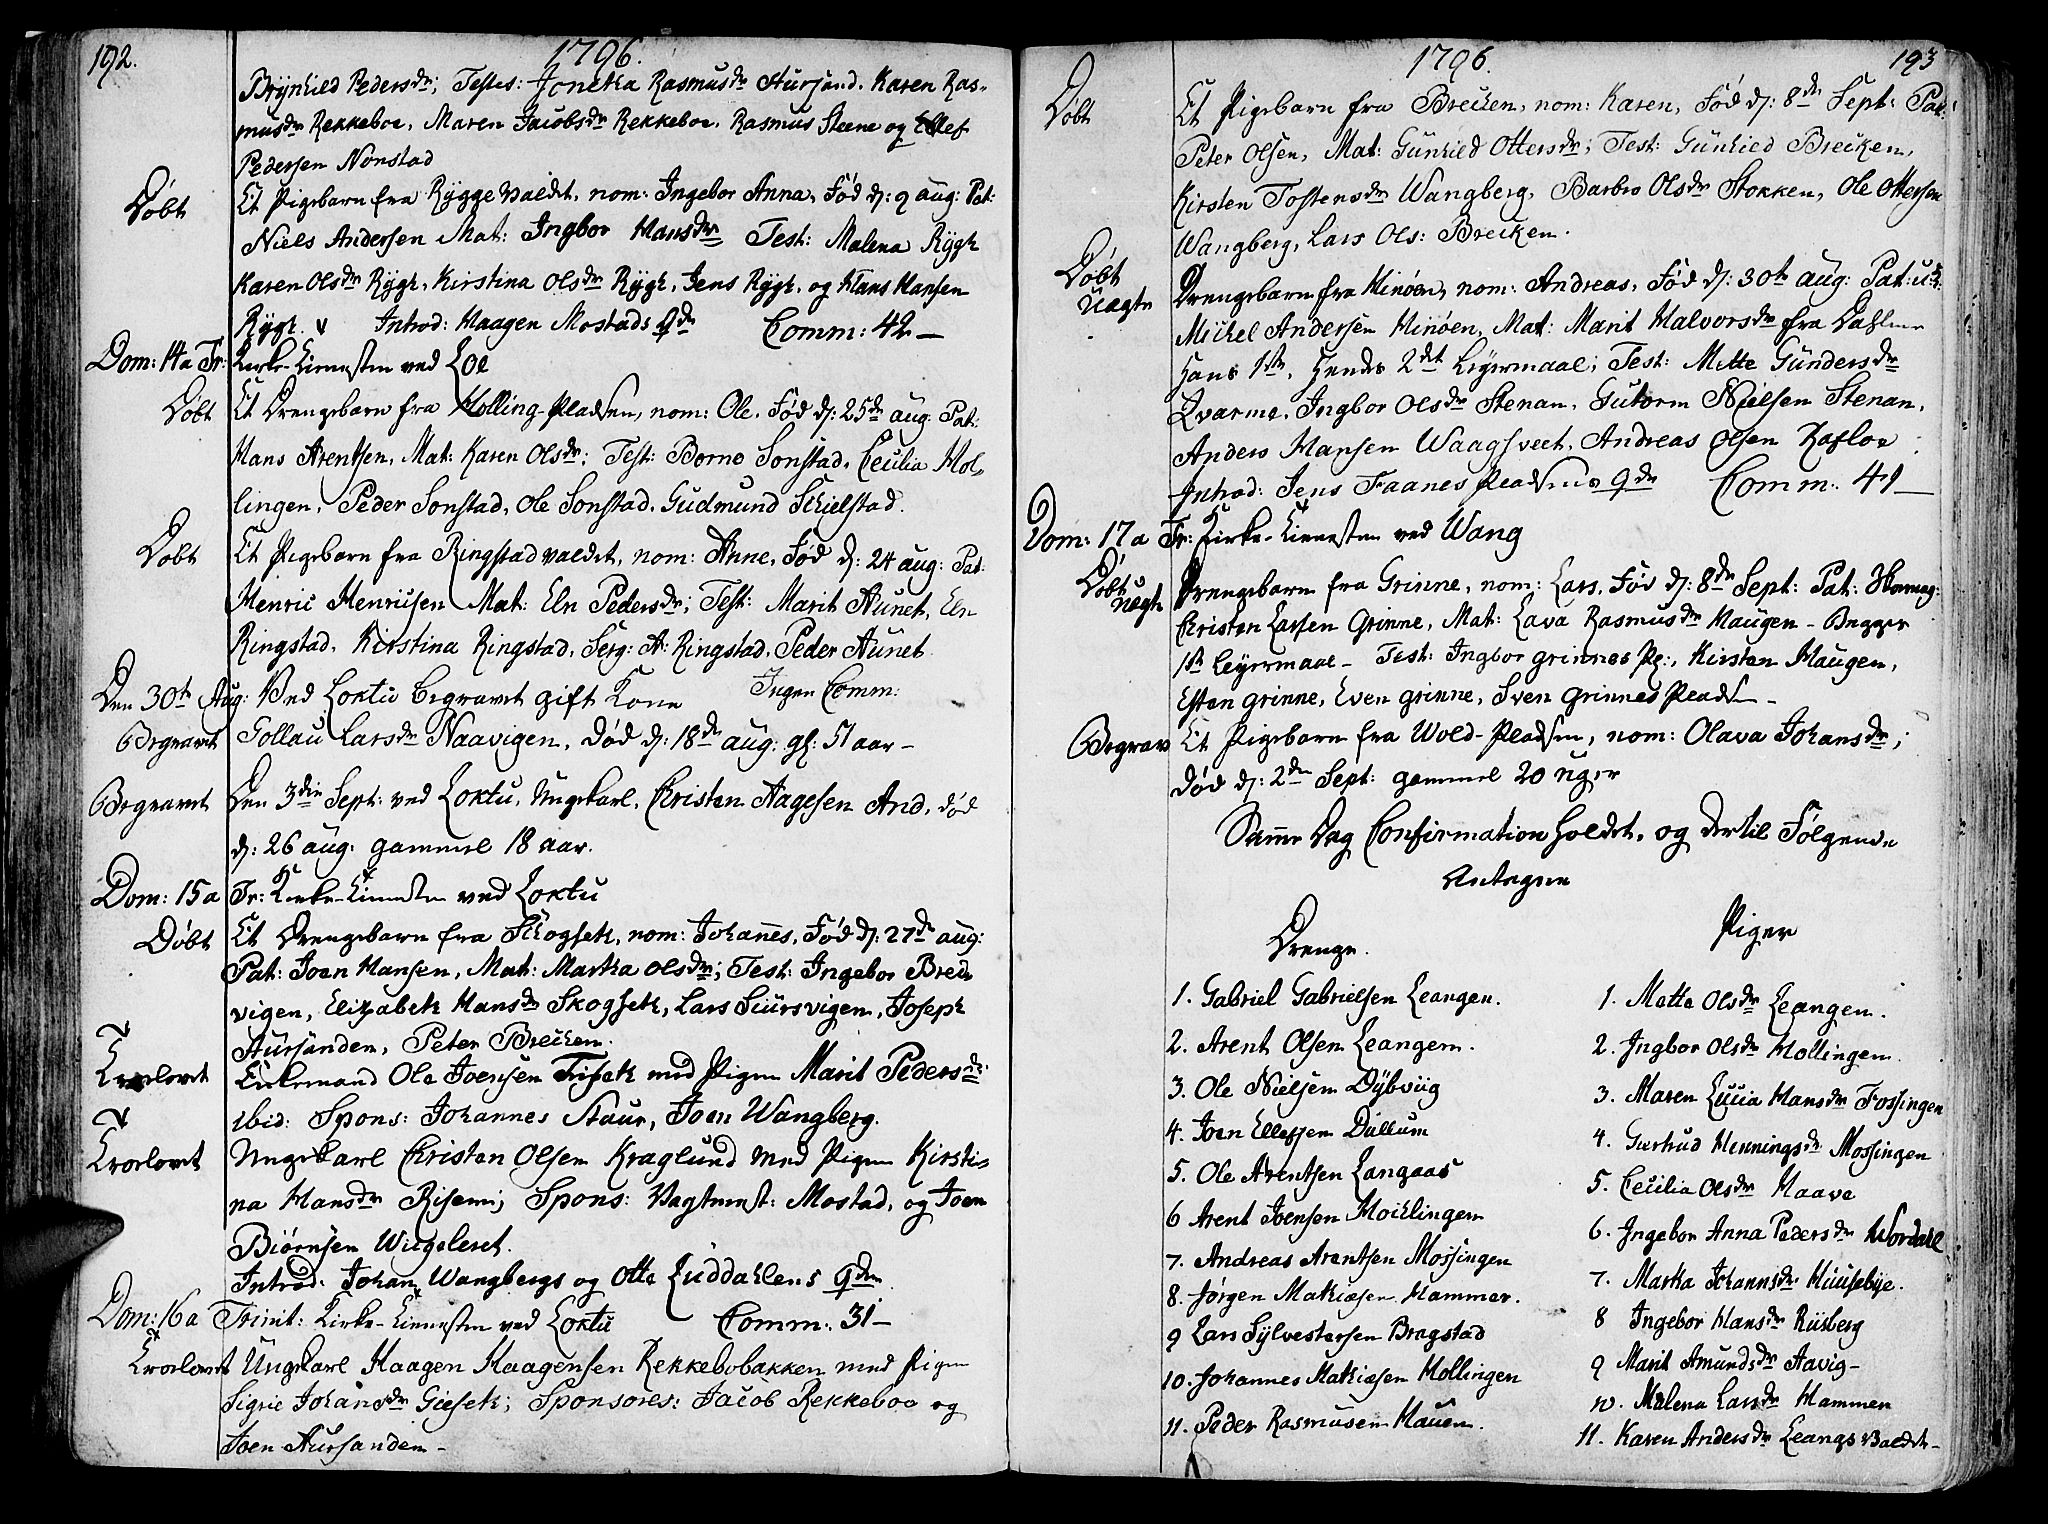 192.
1796.
Brynhild Pedersdr; Testes: Jonetha Rasmusdr Aursand. Karen Ras-
musdr Rekkeboe, Maren Jacobsdr Rekkeboe, Rasmus Steene og Ellef
Pedersen Nonstad
Døbt Et Pigebarn fra Rygge valdet, nom: Ingebor Anna, Fød d: 9 aug: Pat:
Niels Andersen Mat: Ingbor Hansdr Test: Malena Rygh
Karen Olsdr Rygh, Kirstina Olsdr Rygh, Jens Rygh, og Hans Hansen
Rygh. Introd: Haagen Mostads Qde Comm: 42 —
Dom: 14 a Tr: Kirke-Tienesten ved Loe
Døbt Et Drengebarn fra Holling-Pladsen, nom: Ole. Fød d: 25de aug: Pat:
Hans Arentsen, Mat: Karen Olsdr; Test: Borno Sonstad, Cecilia Hol-
lingen, Peder Sonstad, Ole Sonstad, Gudmund Schielstad.
Døbt Et Pigebarn fra Ringstad valdet, nom: Anne, Fød d: 24 aug: Pat:
Henric Henricsen Mat: Eln Pedersdr; Test: Marit Aunet, Eln
Ringstad, Kirstina Ringstad, Serg: A: Ringstad, Peder Aunet.
Den 30te Aug: Ved Loktu begravet gift Kone Ingen Comm:
Begravet Gollau Larsdr Naavigen, død d: 18de aug: gl: 51 aar —
Begravet Den 3die Sept: ved Loktu, Ungkarl, Christen Aagesen And, død
d: 26 aug: gammel 18 aar.
Dom: 15 a Tr: Kirke-Tienesten ved Loktu
Døbt Et Drengebarn fra Skogseth, nom: Johannes, Fød d: 27de aug:
Pat: Joen Hansen, Mat: Martha Olsdr; Test: Ingebor Bred-
vigen, Elizabeth Hansdr Skogseth, Lars Siursvigen, Joseph
Aursanden, Peter Brechen.
Trolovet Enkemand Ole Joensen Fiseth med Pigen Marit Pedersdr
ibid: Spons: Johannes Staur, Joen Wangberg.
Trolovet Ungekarl Christen Olsen Kraglund med Pigen Kirsti-
na Hansdr Risem; Spons: Vagtmest: Mostad, og Joen
Biørnsen Wigeleret.
Introd: Johan Wangbergs og Otte Luddahlens Qder.
Dom: 16 a Trinit: Kirke-Tienesten ved Loktu Comm: 31 —
Trolovet Ungekarl Haagen Haagensen Rekkebobakken med Pigen
Sigrie Johansdr Gieseth; Sponsores: Jacob Rekkeboe og
Joen Aursanden —
1796.
193
Døbt Et Pigebarn fra Brechen, nom: Karen, Fød d: 8de Sept: Pat:
Peter Olsen, Mat: Gunhild Ottersdr; Test: Gunhild Brecken,
Kirsten Tostensdr Wangberg, Barbro Olsdr Stokken, Ole Ottersen
Wangberg, Lars Ols: Brecken.
Døbt Uægte Drengebarn fra Hinøen, nom: Andreas, Fød d: 30te aug: Pat:
Michel Andersen Hinøen, Mat: Marit Halvorsdr fra
Hans 1ste, Hendes 2det Leyermaal; Test: Mette Gundersdr
Qvarme, Ingbor Olsdr Stenan, Gutorm Nielsen Stenan,
Anders Hansen Waagsveet, Andreas Olsen Rafloe
Introd: Jens Faanes Pladsens Qde Comm: 41 —
Dom: 17 a Tr: Kirke-Tienesten ved Wang
Døbt uægte Drengebarn fra Grinne, nom: Lars, Fød d: 8de Sept: Pat:
Christen Larsen Grinne, Mat: Lava Rasmusdr Haugen — Begges
1ste Leyermaal — Test: Ingbor grinnes Pl:, Kirsten Haugen,
Esten grinne, Even grinne, Sven grinnes Plads —
Begrav Et Pigebarn fra Wold-Pladsen, nom: Olava Johansdr;
død d: 2den Sept: gammel 20 uger
Samme Dag Confirmation holdet, og dertil Følgende
Antagne
Drenge.
1. Gabriel Gabrielsen Leangen.
2. Arent Olsen Leangen.
3. Ole Nielsen Dybviig
4. Joen Ellefsen Dullum
5. Ole Arentsen Langaas
6 Arent Joensen Moichlingen
7. Andreas Arentsen Mossingen
8. Jørgen Mathiesen Hammer.
9 Lars Sylvestersen Bragstad
10. Johannes Mathiesen Hollingen
11. Peder Rasmusen Hauen.
Piger
1. Mette Olsdr Leangen.
2. Ingbor Olsdr Hollingen.
3. Maren Lucia Hansdr Fossingen
4. Giertrud Henningsdr Mossingen
5. Cecilia Olsdr Haave
6. Ingebor Anna Pedersdr Wordahl
7. Martha Johannsdr Huusebye.
8 Ingebor Hansdr Riisberg
9 Marit Amundsdr Aavig —
10. Malena Larsdr Hammer
11. Karen Andersdr Leangs valdet —